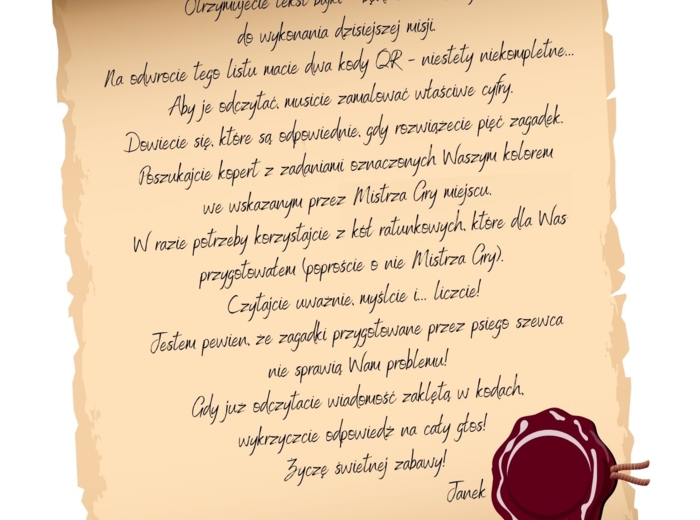 Otrzymujecie tekst bajki
do wykonania dzisiejszej misji.
Na odwrocie tego listu macie dwa kody QR - niestety niekompletne...
Aby je odczytać, musicie zamalować właściwe cyfry.
Dowiecie się, które są odpowiednie, gdy rozwiążecie pięć zagadek.
Poszukajcie kopert z zadaniami oznaczonych Waszym kolorem
we wskazanym przez Mistrza Gry miejscu.
W razie potrzeby korzystajcie z kół ratunkowych, które dla Was
przygotowałem (poproście o nie Mistrza Gry).
Czytajcie uważnie, myślcie i... liczcie!
Jestem pewien, że zagadki przygotowane przez psiego szewca
nie sprawią Wam problemu!
Gdy już odczytacie wiadomość zaklętą w kodach,
wykrzyczcie odpowiedź na cały głos!
Życzę świetnej zabawy!
Janek